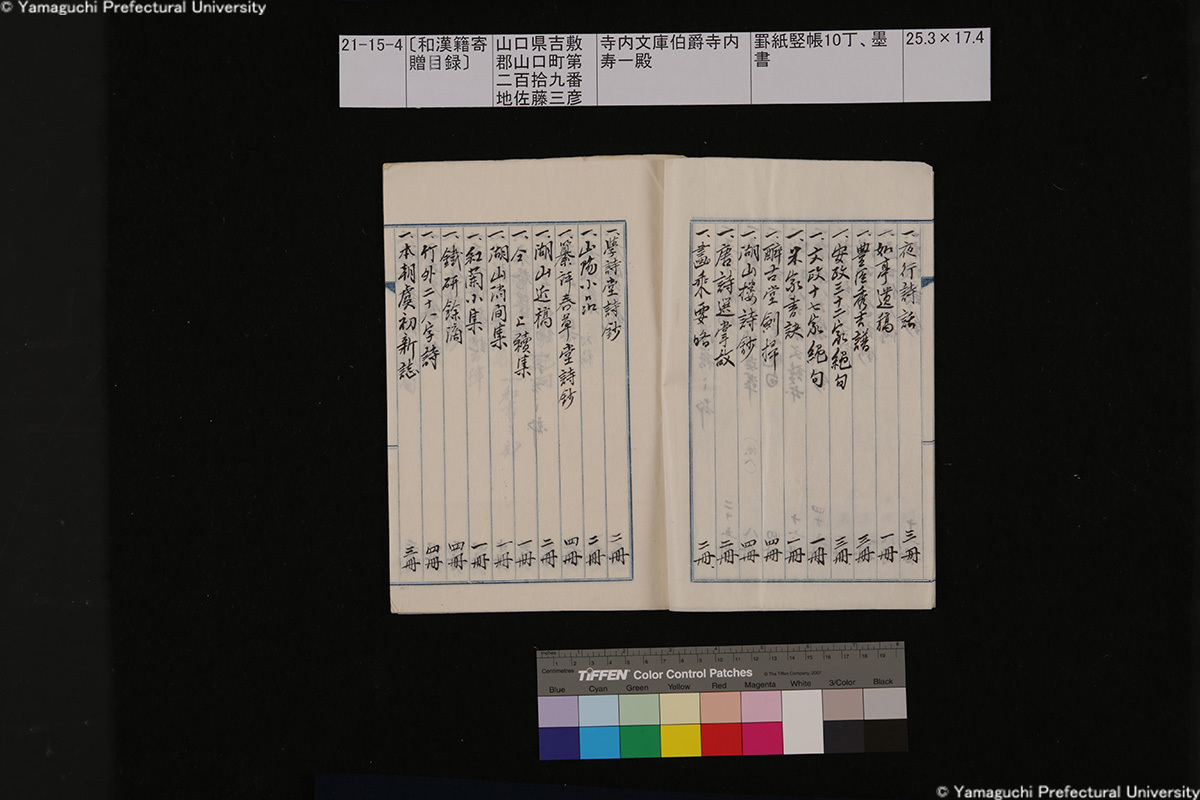 © Yamaguchi Prefectural University
21-15-4
〔和漢籍寄
贈目録〕
山口県吉敷
郡山口町第
二百拾九番
地佐藤三彦
寺内文庫伯爵寺内
寿一殿
罫紙竪帳10丁、墨
書
25.3×17.4
一、夜行詩話 三冊
一、如亭遺稿 一冊
一、豊臣秀吉譜 三冊
一、安政三十二家絶句 三冊
一、文政十七家絶句 一冊
一、米家書訣 一冊
一、酔古堂剣掃 四冊
一、湖山楼詩鈔 四冊
一、唐詩選掌故 二冊
一、画乘要略 二冊
一、學詩堂詩鈔 二冊
一、山陽小品 二冊
一、纂評春草堂詩鈔 四冊
一、湖山近稿 二冊
一、仝 上續集 一冊
一、湖山消閒集 一冊
一、紅蘭小集 一冊
一、鐵研餘滴 四冊
一、竹外二十八字詩 四冊
一、本朝虞初新誌 三冊
Inches
Centimetres
TIFFEN Color Control Patches
© The Tiffen Company, 2007
Blue Cyan Green Yellow Red Magenta White 3/Color Black
© Yamaguchi Prefectural University